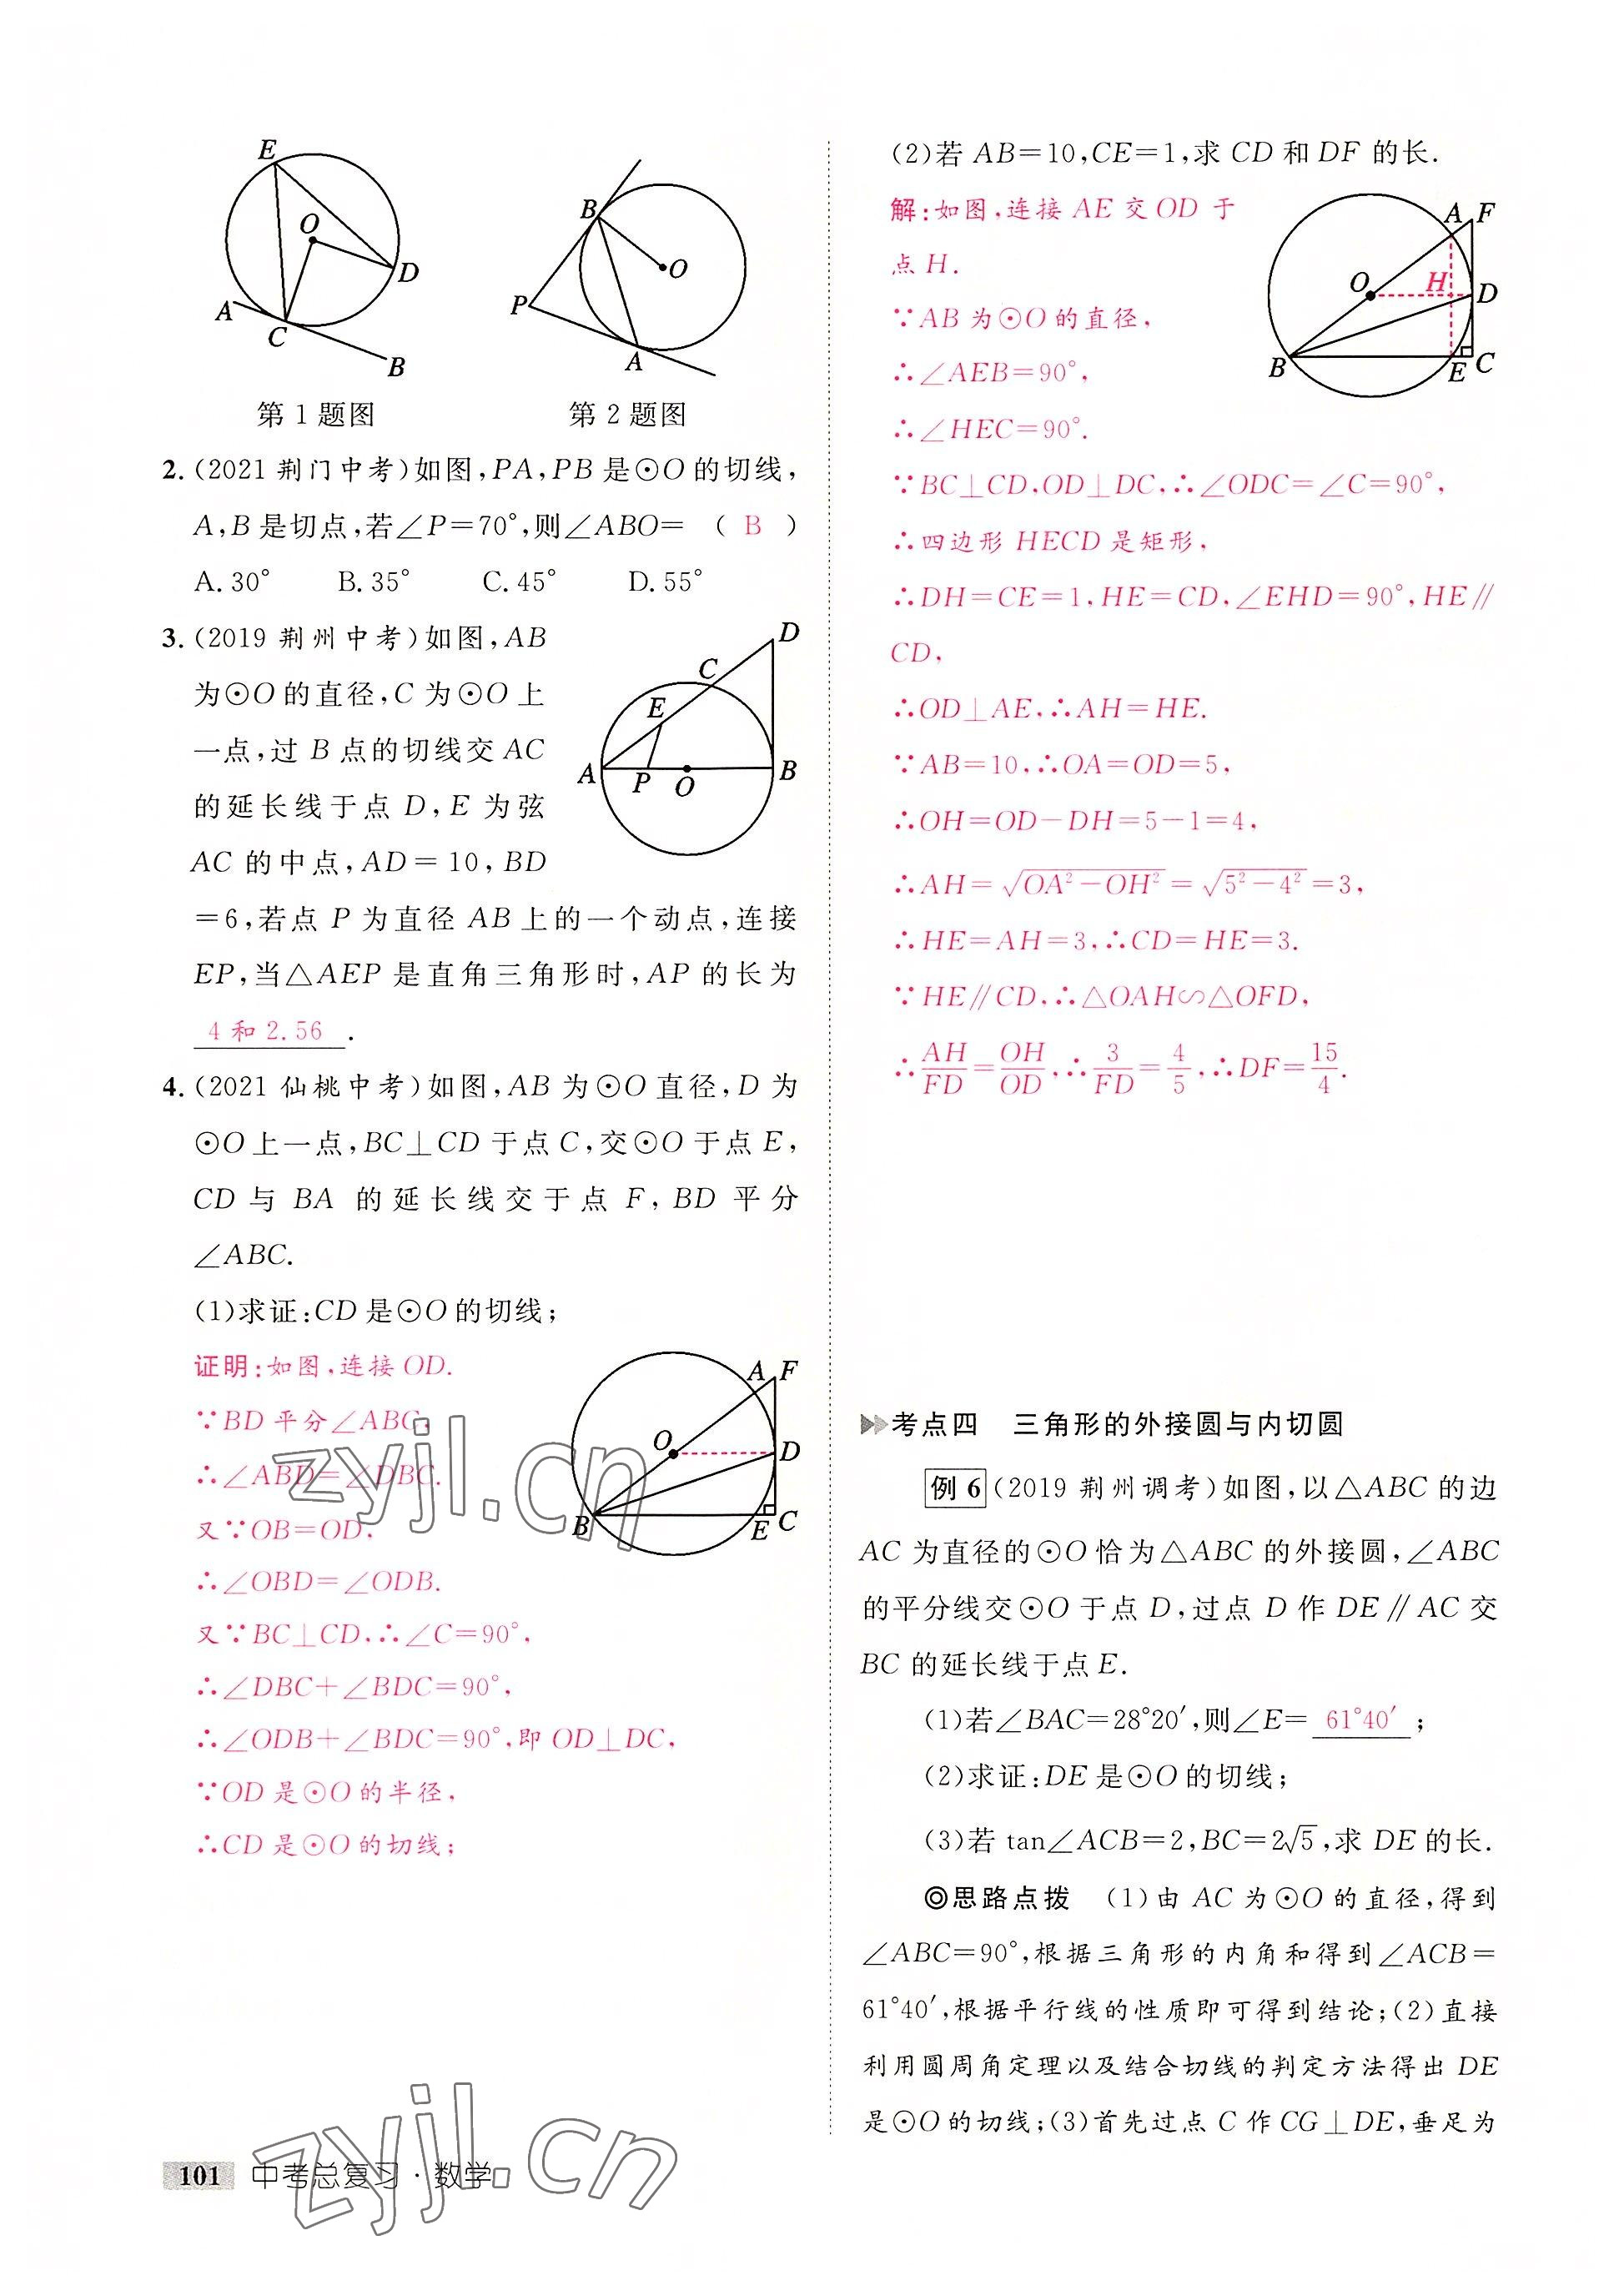 E
O
D
A
C
B
第 1 题图
B
O
P
A
第 2 题图
2. (2021 荆门中考)如图,PA,PB 是⊙O 的切线,
A,B 是切点,若∠P=70°,则∠ABO= ( B )
A. 30° B. 35° C. 45° D. 55°
3. (2019 荆州中考)如图,AB
为⊙O 的直径,C 为⊙O 上
一点,过 B 点的切线交 AC
的延长线于点 D,E 为弦
AC 的中点,AD=10,BD
=6,若点 P 为直径 AB 上的一个动点,连接
EP,当△AEP 是直角三角形时,AP 的长为
4 和 2.56 .
D
C
E
A
P
O
B
4. (2021 仙桃中考)如图,AB 为⊙O 直径,D 为
⊙O 上一点,BC⊥CD 于点 C,交⊙O 于点 E,
CD 与 BA 的延长线交于点 F,BD 平分
∠ABC.
(1)求证:CD 是⊙O 的切线;
证明:如图,连接 OD.
∵BD 平分∠ABC,
∴∠ABD=∠DBC.
又∵OB=OD,
∴∠OBD=∠ODB.
又∵BC⊥CD,∴∠C=90°,
∴∠DBC+∠BDC=90°,
∴∠ODB+∠BDC=90°,即 OD⊥DC,
∵OD 是⊙O 的半径,
∴CD 是⊙O 的切线;
A F
O
D
B
E C
(2)若 AB=10,CE=1,求 CD 和 DF 的长.
解:如图,连接 AE 交 OD 于
点 H.
∵AB 为⊙O 的直径,
∴∠AEB=90°,
∴∠HEC=90°.
∵BC⊥CD,OD⊥DC,∴∠ODC=∠C=90°,
∴四边形 HECD 是矩形,
∴DH=CE=1,HE=CD,∠EHD=90°,HE∥
CD,
∴OD⊥AE,∴AH=HE.
∵AB=10,∴OA=OD=5,
∴OH=OD−DH=5−1=4,
∴AH=√(OA²−OH²)=√(5²−4²)=3,
∴HE=AH=3,∴CD=HE=3.
∵HE∥CD,∴△OAH∽△OFD,
∴AH/FD=OH/OD,∴3/FD=4/5,∴DF=15/4.
A F
O
H
D
B
E C
考点四 三角形的外接圆与内切圆
例 6 (2019 荆州调考)如图,以△ABC 的边
AC 为直径的⊙O 恰为△ABC 的外接圆,∠ABC
的平分线交⊙O 于点 D,过点 D 作 DE∥AC 交
BC 的延长线于点 E.
(1)若∠BAC=28°20′,则∠E= 61°40′ ;
(2)求证:DE 是⊙O 的切线;
(3)若 tan∠ACB=2,BC=2√5,求 DE 的长.
◎思路点拨 (1)由 AC 为⊙O 的直径,得到
∠ABC=90°,根据三角形的内角和得到∠ACB=
61°40′,根据平行线的性质即可得到结论;(2)直接
利用圆周角定理以及结合切线的判定方法得出 DE
是⊙O 的切线;(3)首先过点 C 作 CG⊥DE,垂足为
101 中考总复习·数学
zyjl.cn
zyjl.cn